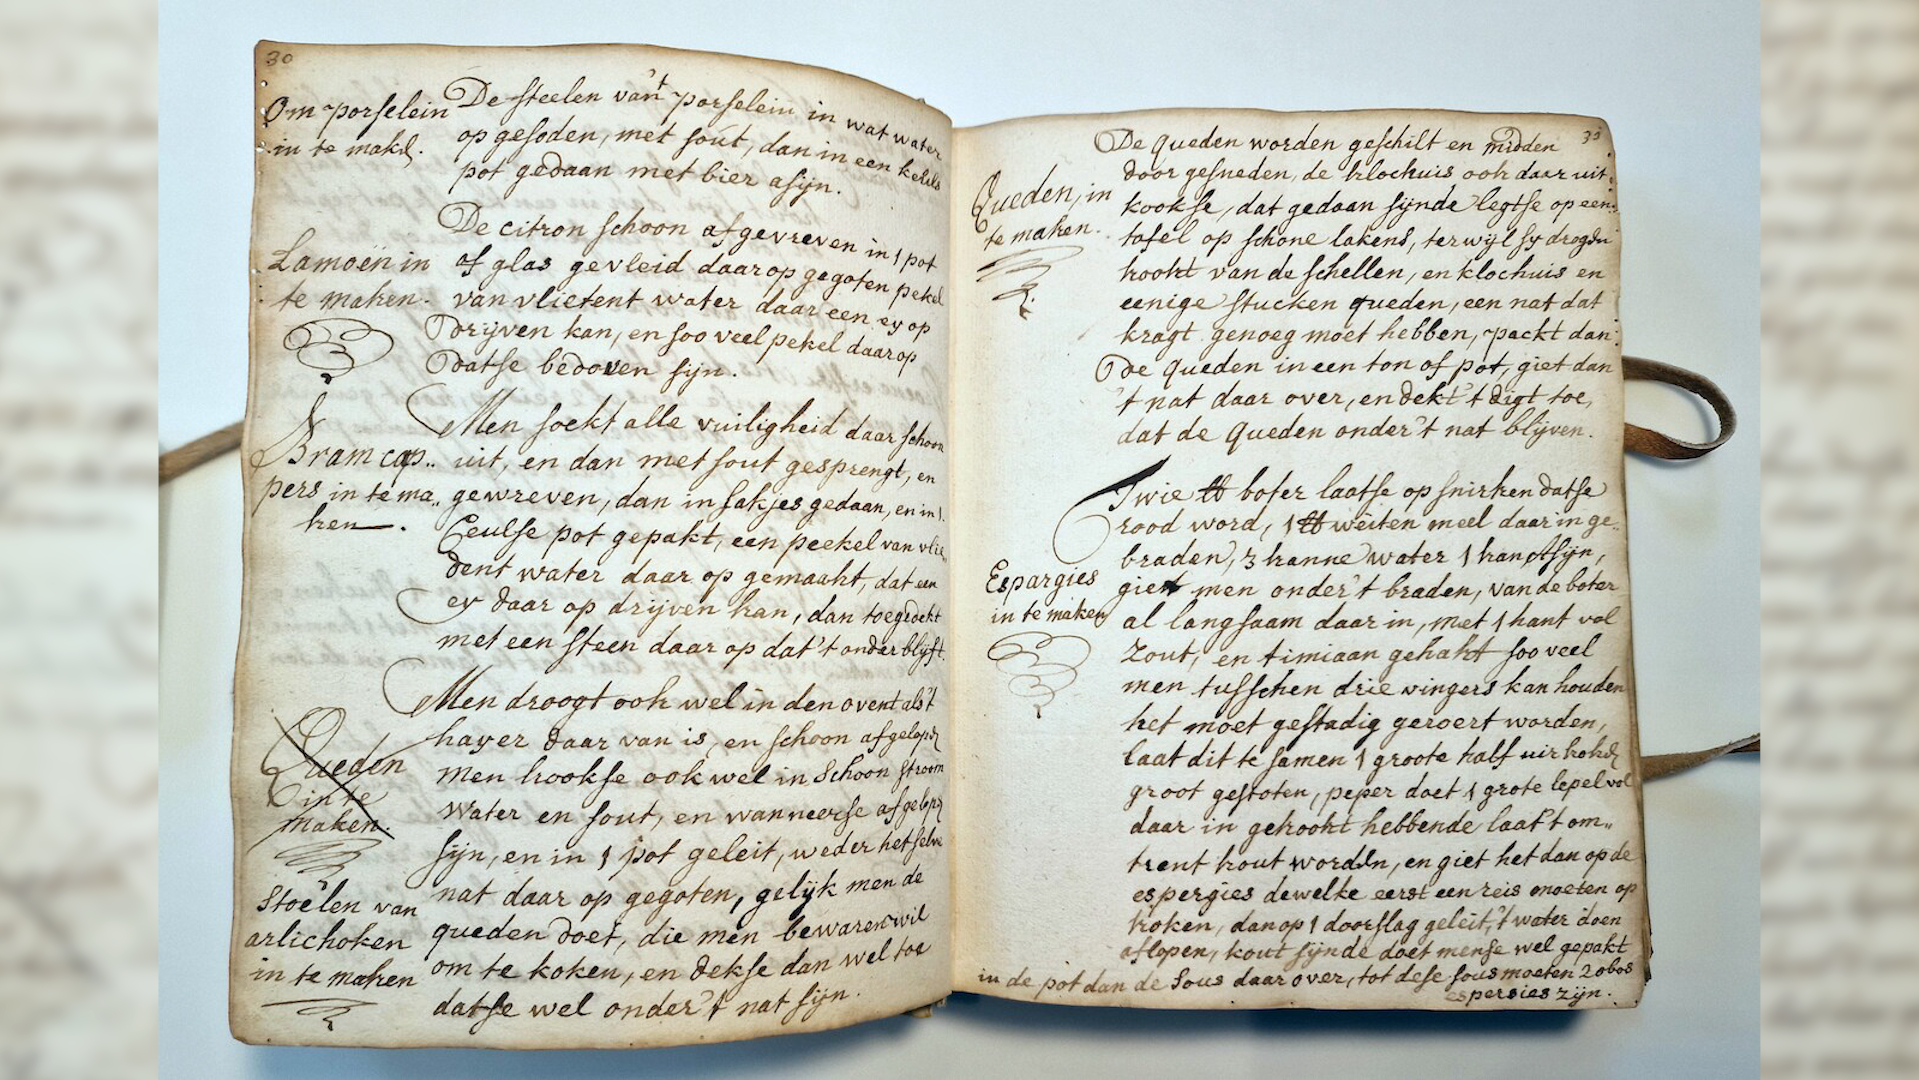 30
Om porselein
in te makē.
De steelen van't porselein in wat water
op gesoden, met sout, dan in een keuls
pot gedaan met bier asijn.
Lamoen in
te maken.
De citron schoon afgevreven in 1 pot
of glas gevleid daar op gegoten pekel
van vlietent water daar een ey op
drijven kan, en soo veel pekel daar op
datse bedoven sijn.
Bram cap..
pers in te ma..
ken.
Men soekt alle vuiligheid daar schoon
uit, en dan met sout gesprengt, en
gewreven, dan in sakjes gedaan, en in 1.
Ceulse pot gepakt, een peekel van vlie..
dent water daar op gemaakt, dat een
ey daar op drijven kan, dan toegedekt
met een steen daar op dat 't onder blijft.
Queden
in te
maken.
Stoelen van
artichoken
in te maken
Men droogt ook wel in den ovent als 't
hayer daar van is, en schoon afgelopē
men kookse ook wel in Schoon stroom
Water en sout, en wanneerse afgelopē
sijn, en in 1 pot geleit, weder het selve
nat daar op gegoten, gelijk men de
queden doet, die men bewaren wil
om te koken, en dekse dan wel toe
datse wel onder 't nat sijn.
Queden, in
te maken.
De queden worden geschilt en midden
door gesneden, de klockuis ook daar uit.
kookse, dat gedaan sijnde legtse op een.
tafel op schone lakens, terwijl sy drogen
kookt van de schellen, en klockuis en
eenige stucken queden, een nat dat
kragt genoeg moet hebben, packt dan
de queden in een ton of pot, giet dan
't nat daar over, en dekt 't digt toe,
dat de queden onder 't nat blijven.
Espargies
in te maken
Twie ℔ boter laatse op snirken datse
rood word, 1 ℔ weiten meel daar in ge..
braden, 3 kanne water 1 kan Asijn,
giet men onder 't braden, van de boter
al langsaam daar in, met 1 hant vol
Zout, en timiaan gehakt soo veel
men tusschen drie vingers kan houden
het moet gestadig geroert worden,
laat dit te samen 1 groote half uir kokē
groot gestoten, peper doet 1 grote lepel vol
daar in gekookt hebbende laat 't om..
trent kout worden, en giet het dan op de
espergies dewelke eerst een reis moeten op
koken, dan op 1 doorslag geleit, 't water doen
aflopen, kout sijnde doet mense wel gepakt
in de pot dan de Sous daar over, tot dese sous moeten 2 obos
espersies zijn.